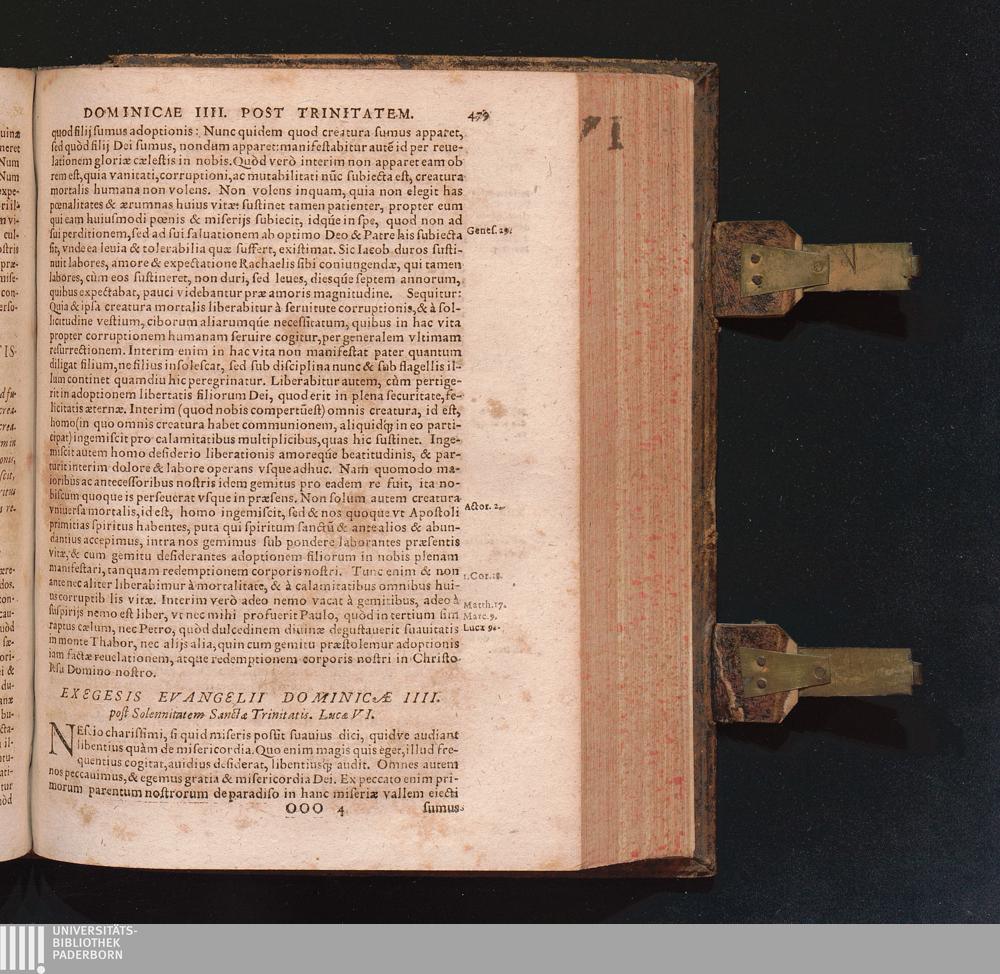 DOMINICAE IIII. POST TRINITATEM. 479
quod filij sumus adoptionis: Nunc quidem quod creatura sumus apparet,
sed quòd filij Dei sumus, nondum apparet: manifestabitur autē id per reue-
lationem gloriæ cælestis in nobis. Quòd verò interim non apparet eam ob
rem est, quia vanitati, corruptioni, ac mutabilitati nūc subiecta est, creatura
mortalis humana non volens. Non volens inquam, quia non elegit has
pœnalitates & ærumnas huius vitæ: sustinet tamen patienter, propter eum
qui eam huiusmodi pœnis & miserijs subiecit, idq́ue in spe, quod non ad
sui perditionem, sed ad sui saluationem ab optimo Deo & Patre his subiecta
Genes. 29.
sit, vnde ea leuia & tolerabilia quæ suffert, existimat. Sic Iacob duros susti-
nuit labores, amore & expectatione Rachaelis sibi coniungendæ, qui tamen
labores, cùm eos sustineret, non duri, sed leues, diesq́ue septem annorum,
quibus expectabat, pauci videbantur præ amoris magnitudine. Sequitur:
Quia & ipsa creatura mortalis liberabitur à seruitute corruptionis, & à sol-
licitudine vestium, ciborum aliarumq́ue necessitatum, quibus in hac vita
propter corruptionem humanam seruire cogitur, per generalem vltimam
resurrectionem. Interim enim in hac vita non manifestat pater quantum
diligat filium, ne filius insolescat, sed sub disciplina nunc & sub flagellis il-
lum continet quamdiu hic peregrinatur. Liberabitur autem, cùm pertige-
rit in adoptionem libertatis filiorum Dei, quod erit in plena securitate, fe-
licitatis æternæ. Interim (quod nobis compertū est) omnis creatura, id est,
homo (in quo omnis creatura habet communionem, aliquidq́; in eo parti-
cipat) ingemiscit pro calamitatibus multiplicibus, quas hic sustinet. Inge-
miscit autem homo desiderio liberationis amoreq́ue beatitudinis, & par-
turit interim dolore & labore operans vsque adhuc. Nam quomodo ma-
ioribus ac antecessoribus nostris idem gemitus pro eadem re fuit, ita no-
biscum quoque is perseuerat vsque in præsens. Non solum autem creatura
vniuersa mortalis, id est, homo ingemiscit, sed & nos quoque vt Apostoli
Actor. 2.
primitias spiritus habentes, puta qui spiritum sanctū & ante alios & abun-
dantius accepimus, intra nos gemimus sub pondere laborantes præsentis
vitæ, & cum gemitu desiderantes adoptionem filiorum in nobis plenam
manifestari, tanquam redemptionem corporis nostri. Tunc enim & non
ante nec aliter liberabimur à mortalitate, & à calamitatibus omnibus hui-
us corruptib lis vitæ. Interim verò adeo nemo vacat à gemitibus, adeo à
suspirijs nemo est liber, vt nec mihi profuerit Paulo, quòd in tertium sim
Matth. 17.
Marc. 9.
raptus cælum, nec Petro, quòd dulcedinem diuinæ degustauerit suauitatis
Lucæ 9.
in monte Thabor, nec alijs alia, quin cum gemitu præstolemur adoptionis
iam factæ reuelationem, atque redemptionem corporis nostri in Christo
Iesu Domino nostro.
EXEGESIS EVANGELII DOMINICÆ IIII.
post Solennitatem Sanctæ Trinitatis. Lucæ VI.
NEscio charissimi, si quid miseris possit suauius dici, quidve audiant
libentius quàm de misericordia. Quo enim magis quis eget, illud fre-
quentius cogitat, auidius desiderat, libentiusq́; audit. Omnes autem
nos peccauimus, & egemus gratia & misericordia Dei. Ex peccato enim pri-
morum parentum nostrorum de paradiso in hanc miseriæ vallem eiecti
OOO 4 sumus
VI
UNIVERSITÄTS-
BIBLIOTHEK
PADERBORN